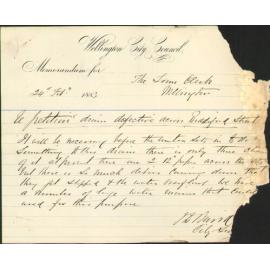 Wellington City Council,
Memorandum for
The Town Clerk
24 Feb. 1883 Wellington
Re petition drain defective across Street
It will be necessary before the winter sets in to do
something to this drain there is only three chains
of it at present there are 2 12 pipes across the
but there is so much debris coming down that
they get stopped & the water We have
a number of large water mains that could be
used for this purpose
City Sur